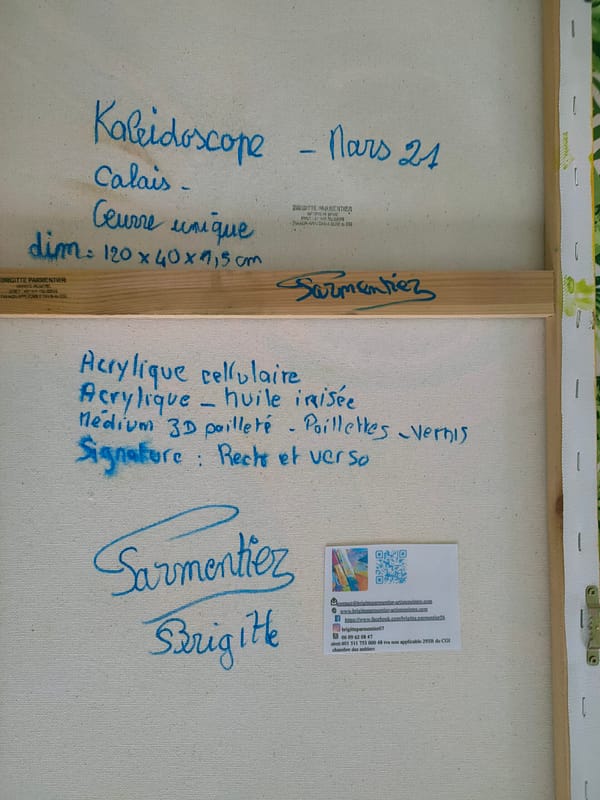 Kaleidoscope - Mars 21
Calais -
Œuvre unique
dim = 120 x 40 x 1,5 cm
BRIGITTE PARMENTIER
BRIGITTE PARMENTIER
Parmentier
Acrylique cellulaire
Acrylique - huile irisée
Médium 3D pailleté - Paillettes - Vernis
Signature : Recto et verso
Parmentier
Brigitte
https://www.facebook.com/brigitte.parmentier56
brigitteparmentier67
06 09 62 08 47
siret 401 511 753 000 48 tva non applicable 293B du CGI
chambre des métiers